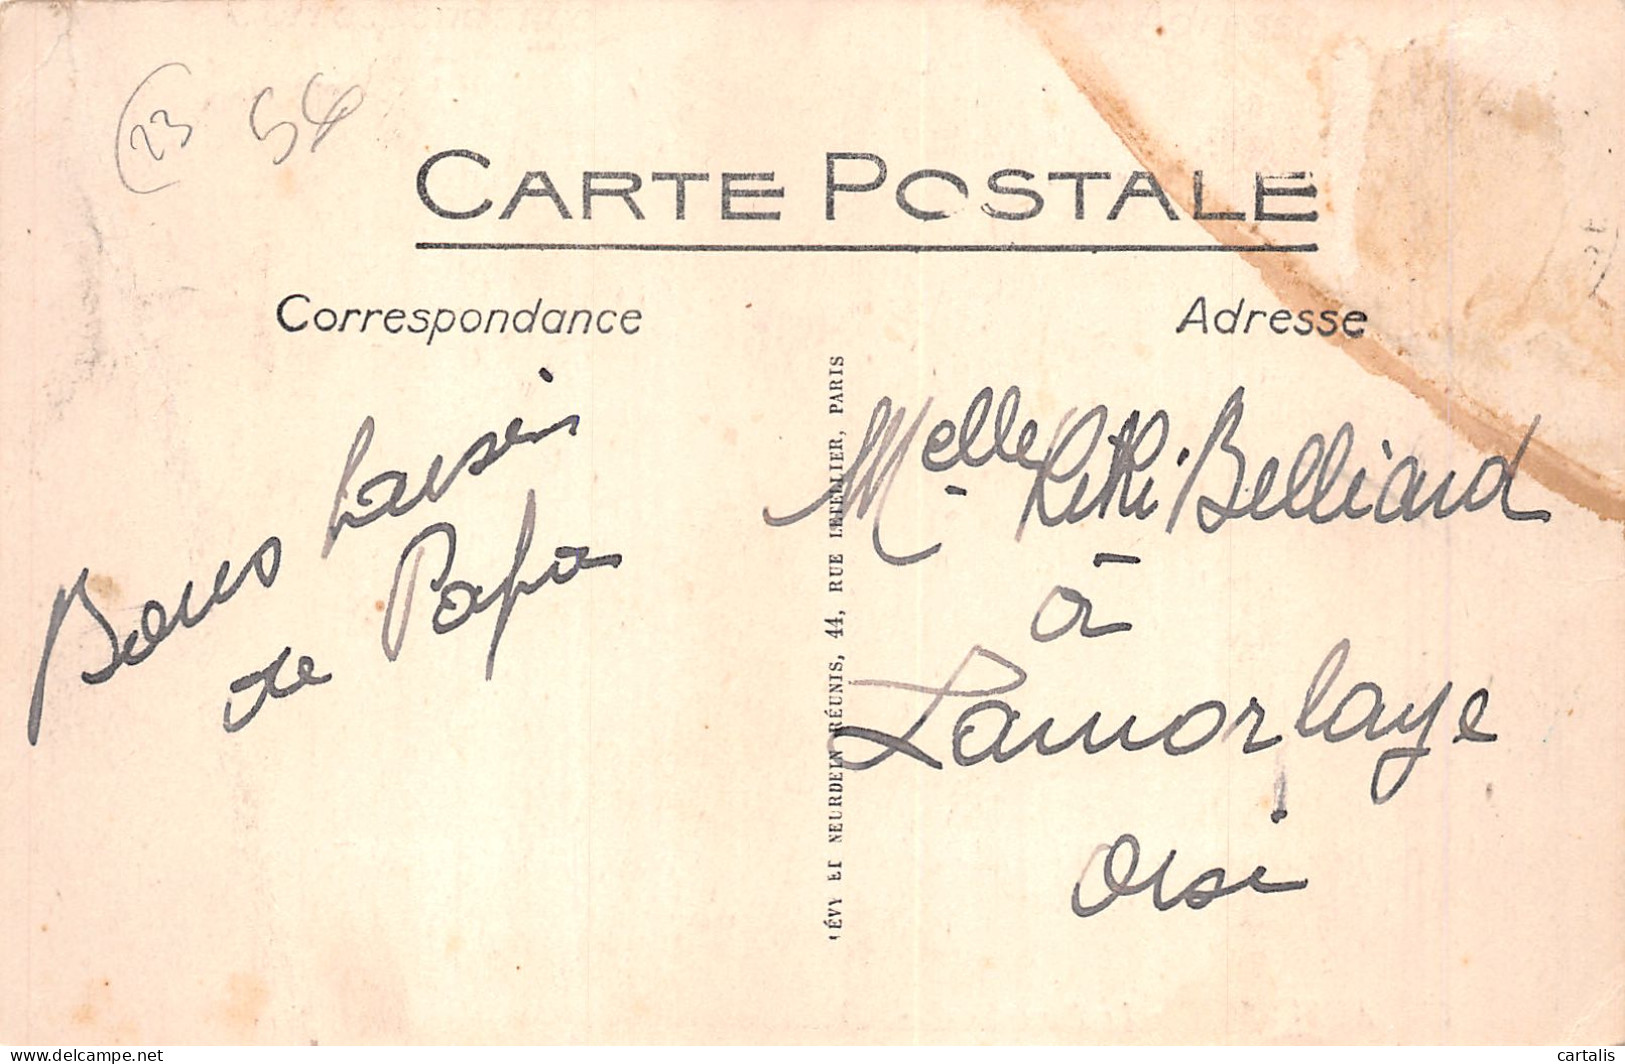 23 54
CARTE POSTALE
Correspondance
Adresse
Bons baisers
de Papa
LÉVY ET NEURDEIN RÉUNIS, 44, RUE LETELLIER, PARIS
Melle KiKi Belliard
à
Lamorlaye
Oise
delcampe.net
cartalis